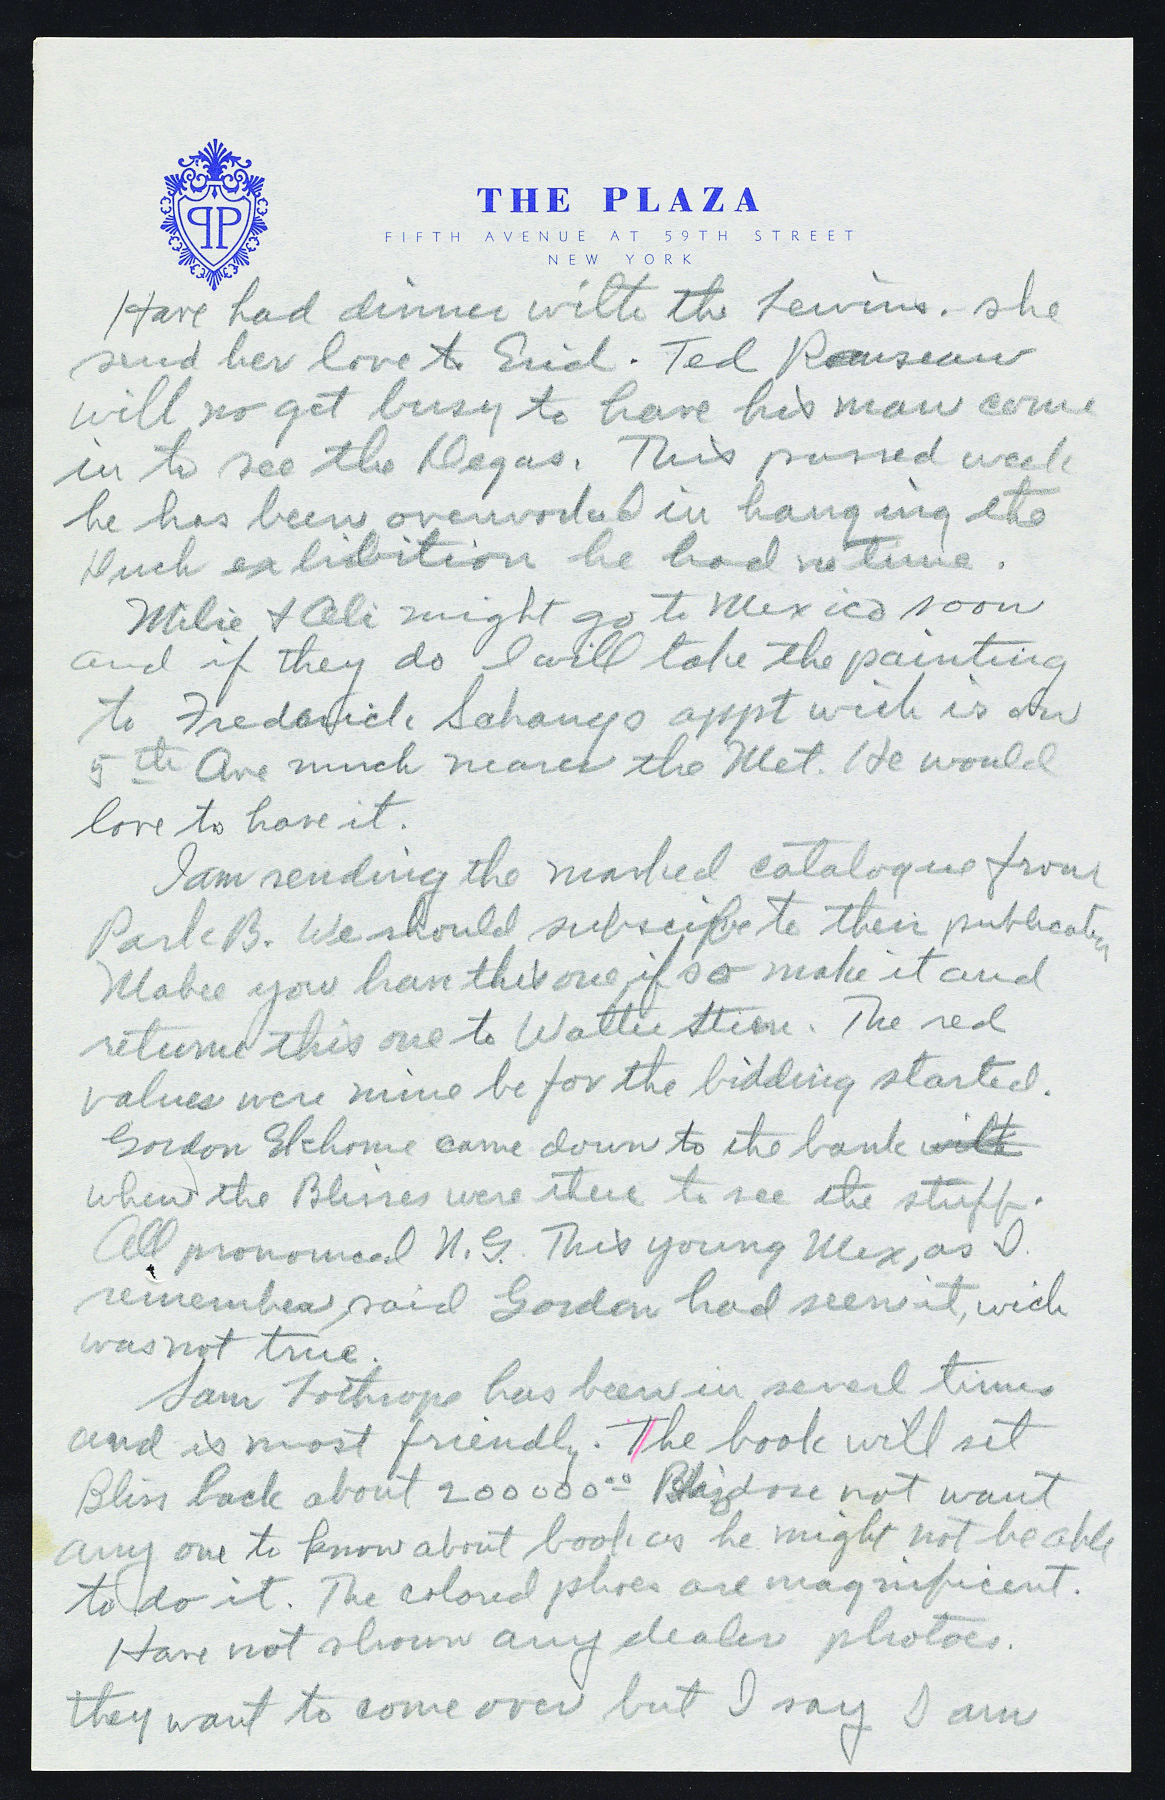 PP
THE PLAZA
FIFTH AVENUE AT 59TH STREET
NEW YORK
Have had dinner with the Lewins. she
send her love to Enid. Ted Rousseau
will no get busy to have his man come
in to see the Degas. This passed week
he has been overworked in hanging the
Duch exhibition he had no time.
Milie & Ali might go to Mexico soon
and if they do I will take the painting
to Frederick appt wich is on
5th Ave much nearer the Met. He would
love to have it.
I am sending the marked catalogue from
Park B. We should subscribe to their publication
Mabee you have this one, if so make it and
return this one to Walter Stein. The red
values were mine befor the bidding started.
Gordon Ekholme came down to the bank with
when the Blisses were there to see the stuff.
All pronounced N.G. This young Mex, as I
remember, said Gordon had seen it, wich
was not true.
Sam Lothrope has been in severl times
and is most friendly. The book will set
Bliss back about 20000000 Bliss dose not want
any one to know about book as he might not be able
to do it. The colored phoes are magnificent.
Have not shown any dealer photoes.
they want to come over but I say I am